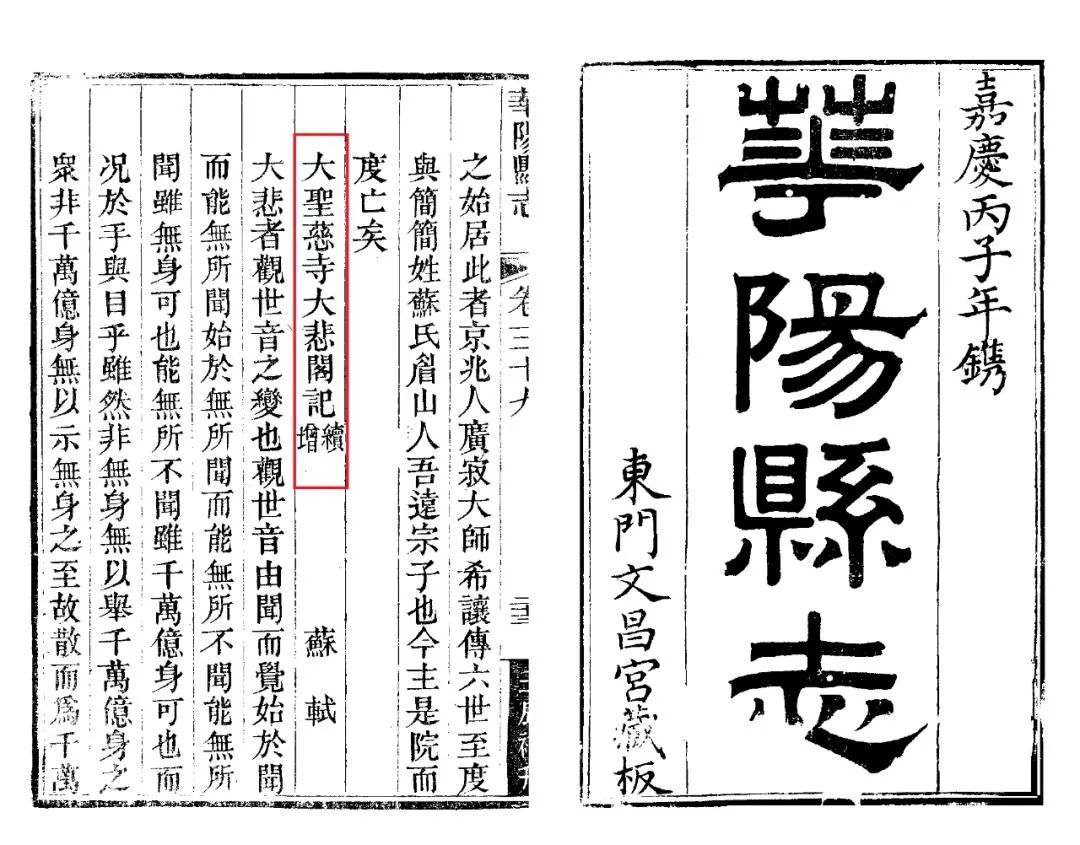 嘉慶丙子年鐫
華陽縣志
東門文昌宮藏板
華陽縣志
卷三十九
之始居此者京兆人廣寂大師希讓傳六世至度
與簡簡姓蘇氏眉山人吾遠宗子也今主是院而
度亡矣
大聖慈寺大悲閣記
續增
蘇軾
大悲者觀世音之變也觀世音由聞而覺始於聞
而能無所聞始於無所聞而能無所不聞能無所
聞雖無身可也能無所不聞雖千萬億身可也而
況於手與目乎雖然非無身無以舉千萬億身之
衆非千萬億身無以示無身之至故散而爲千萬